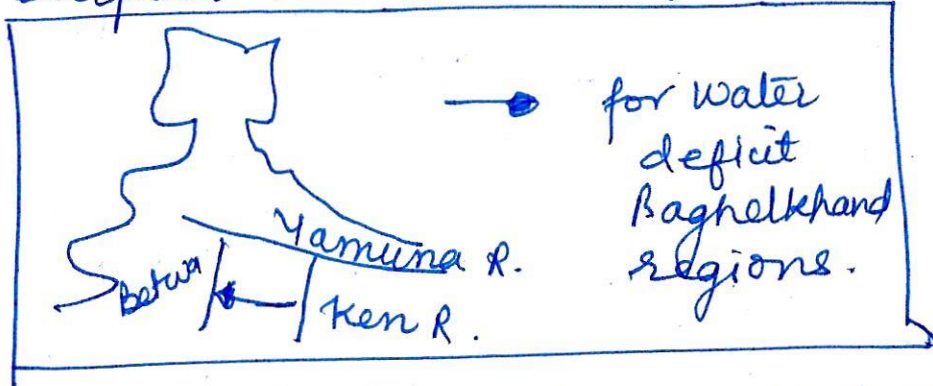 for water
deficit
Baghelkhand
regions.
Yamuna R.
Betwa
Ken R.